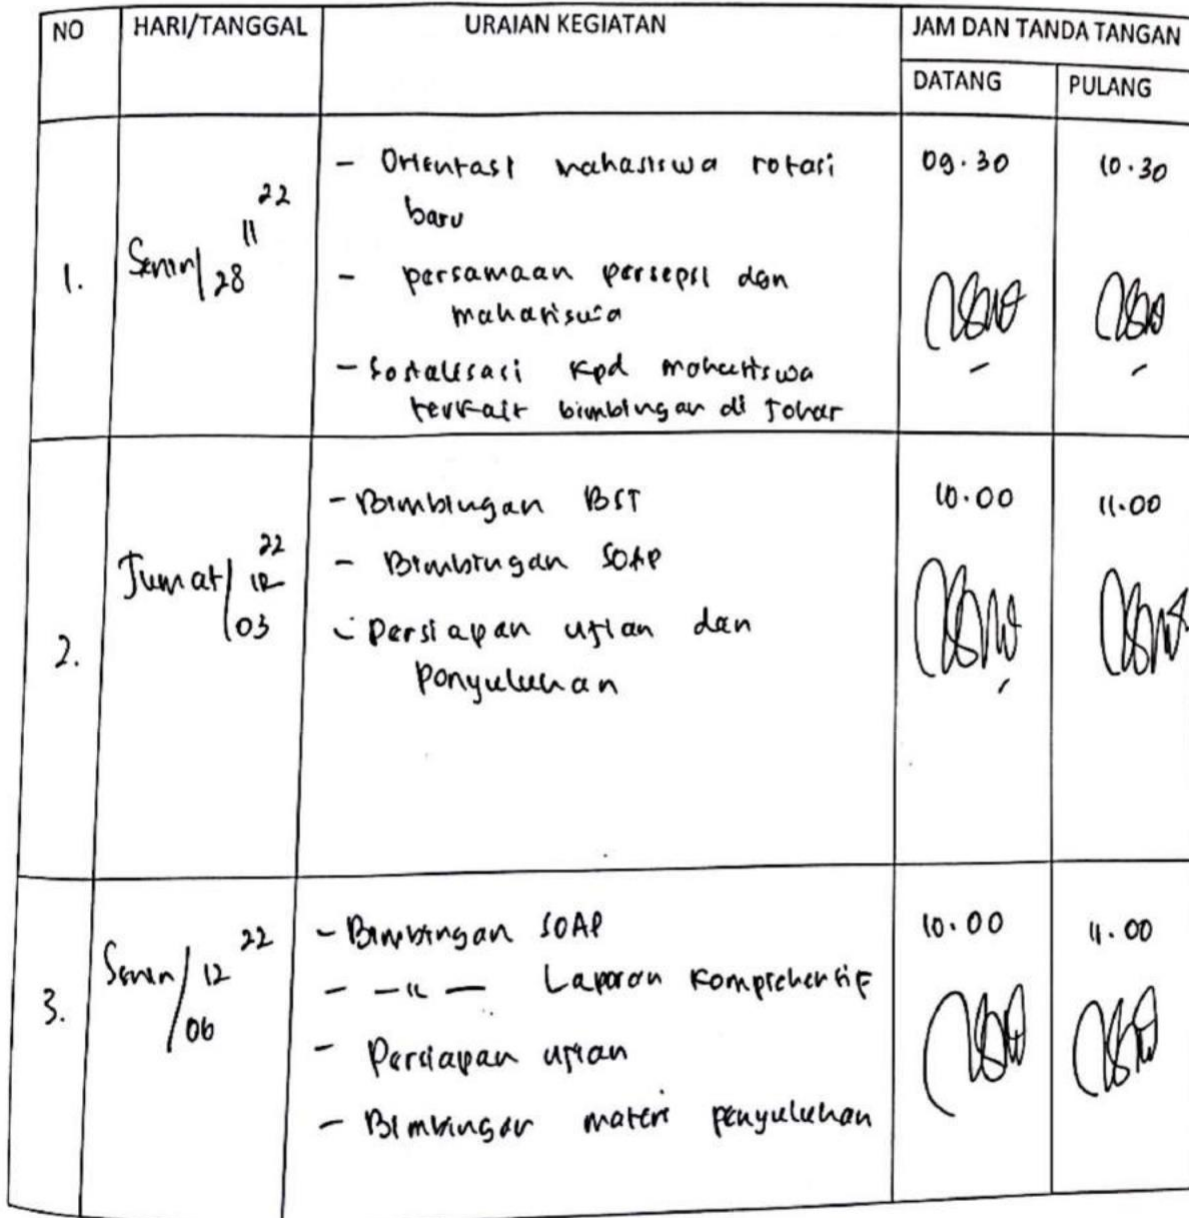 NO HARI/TANGGAL URAIAN KEGIATAN JAM DAN TANDA TANGAN
DATANG PULANG
1. Senin/28 11 22
- Orientasi mahasiswa rotasi
baru
- persamaan persepsi dgn
mahasiswa
- Sosialisasi kpd mahasiswa
terkait bimbingan di Johar
09.30 10.30
2. Jumat/03 12 22
- Bimbingan BST
- Bimbingan SOAP
- Persiapan ujian dan
penyuluhan
10.00 11.00
3. Senin/06 12 22
- Bimbingan SOAP
- -"- Laporan Komprehensif
- Persiapan ujian
- Bimbingan materi penyuluhan
10.00 11.00